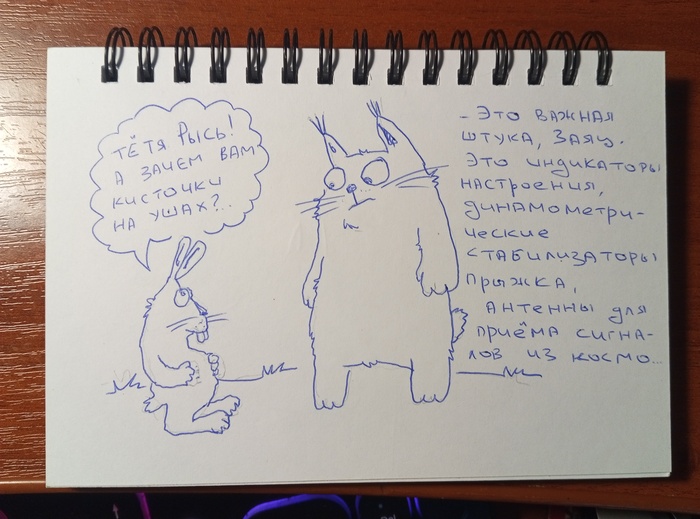 ТЁТЯ РЫСЬ!
А ЗАЧЕМ ВАМ
КИСТОЧКИ
НА УШАХ?..
- ЭТО ВАЖНАЯ
ШТУКА, ЗАЯЦ.
ЭТО ИНДИКАТОРЫ
НАСТРОЕНИЯ,
ДИНАМОМЕТРИ-
ЧЕСКИЕ
СТАБИЛИЗАТОРЫ
ПРЫЖКА,
АНТЕННЫ ДЛЯ
ПРИЁМА СИГНА-
ЛОВ ИЗ КОСМО...